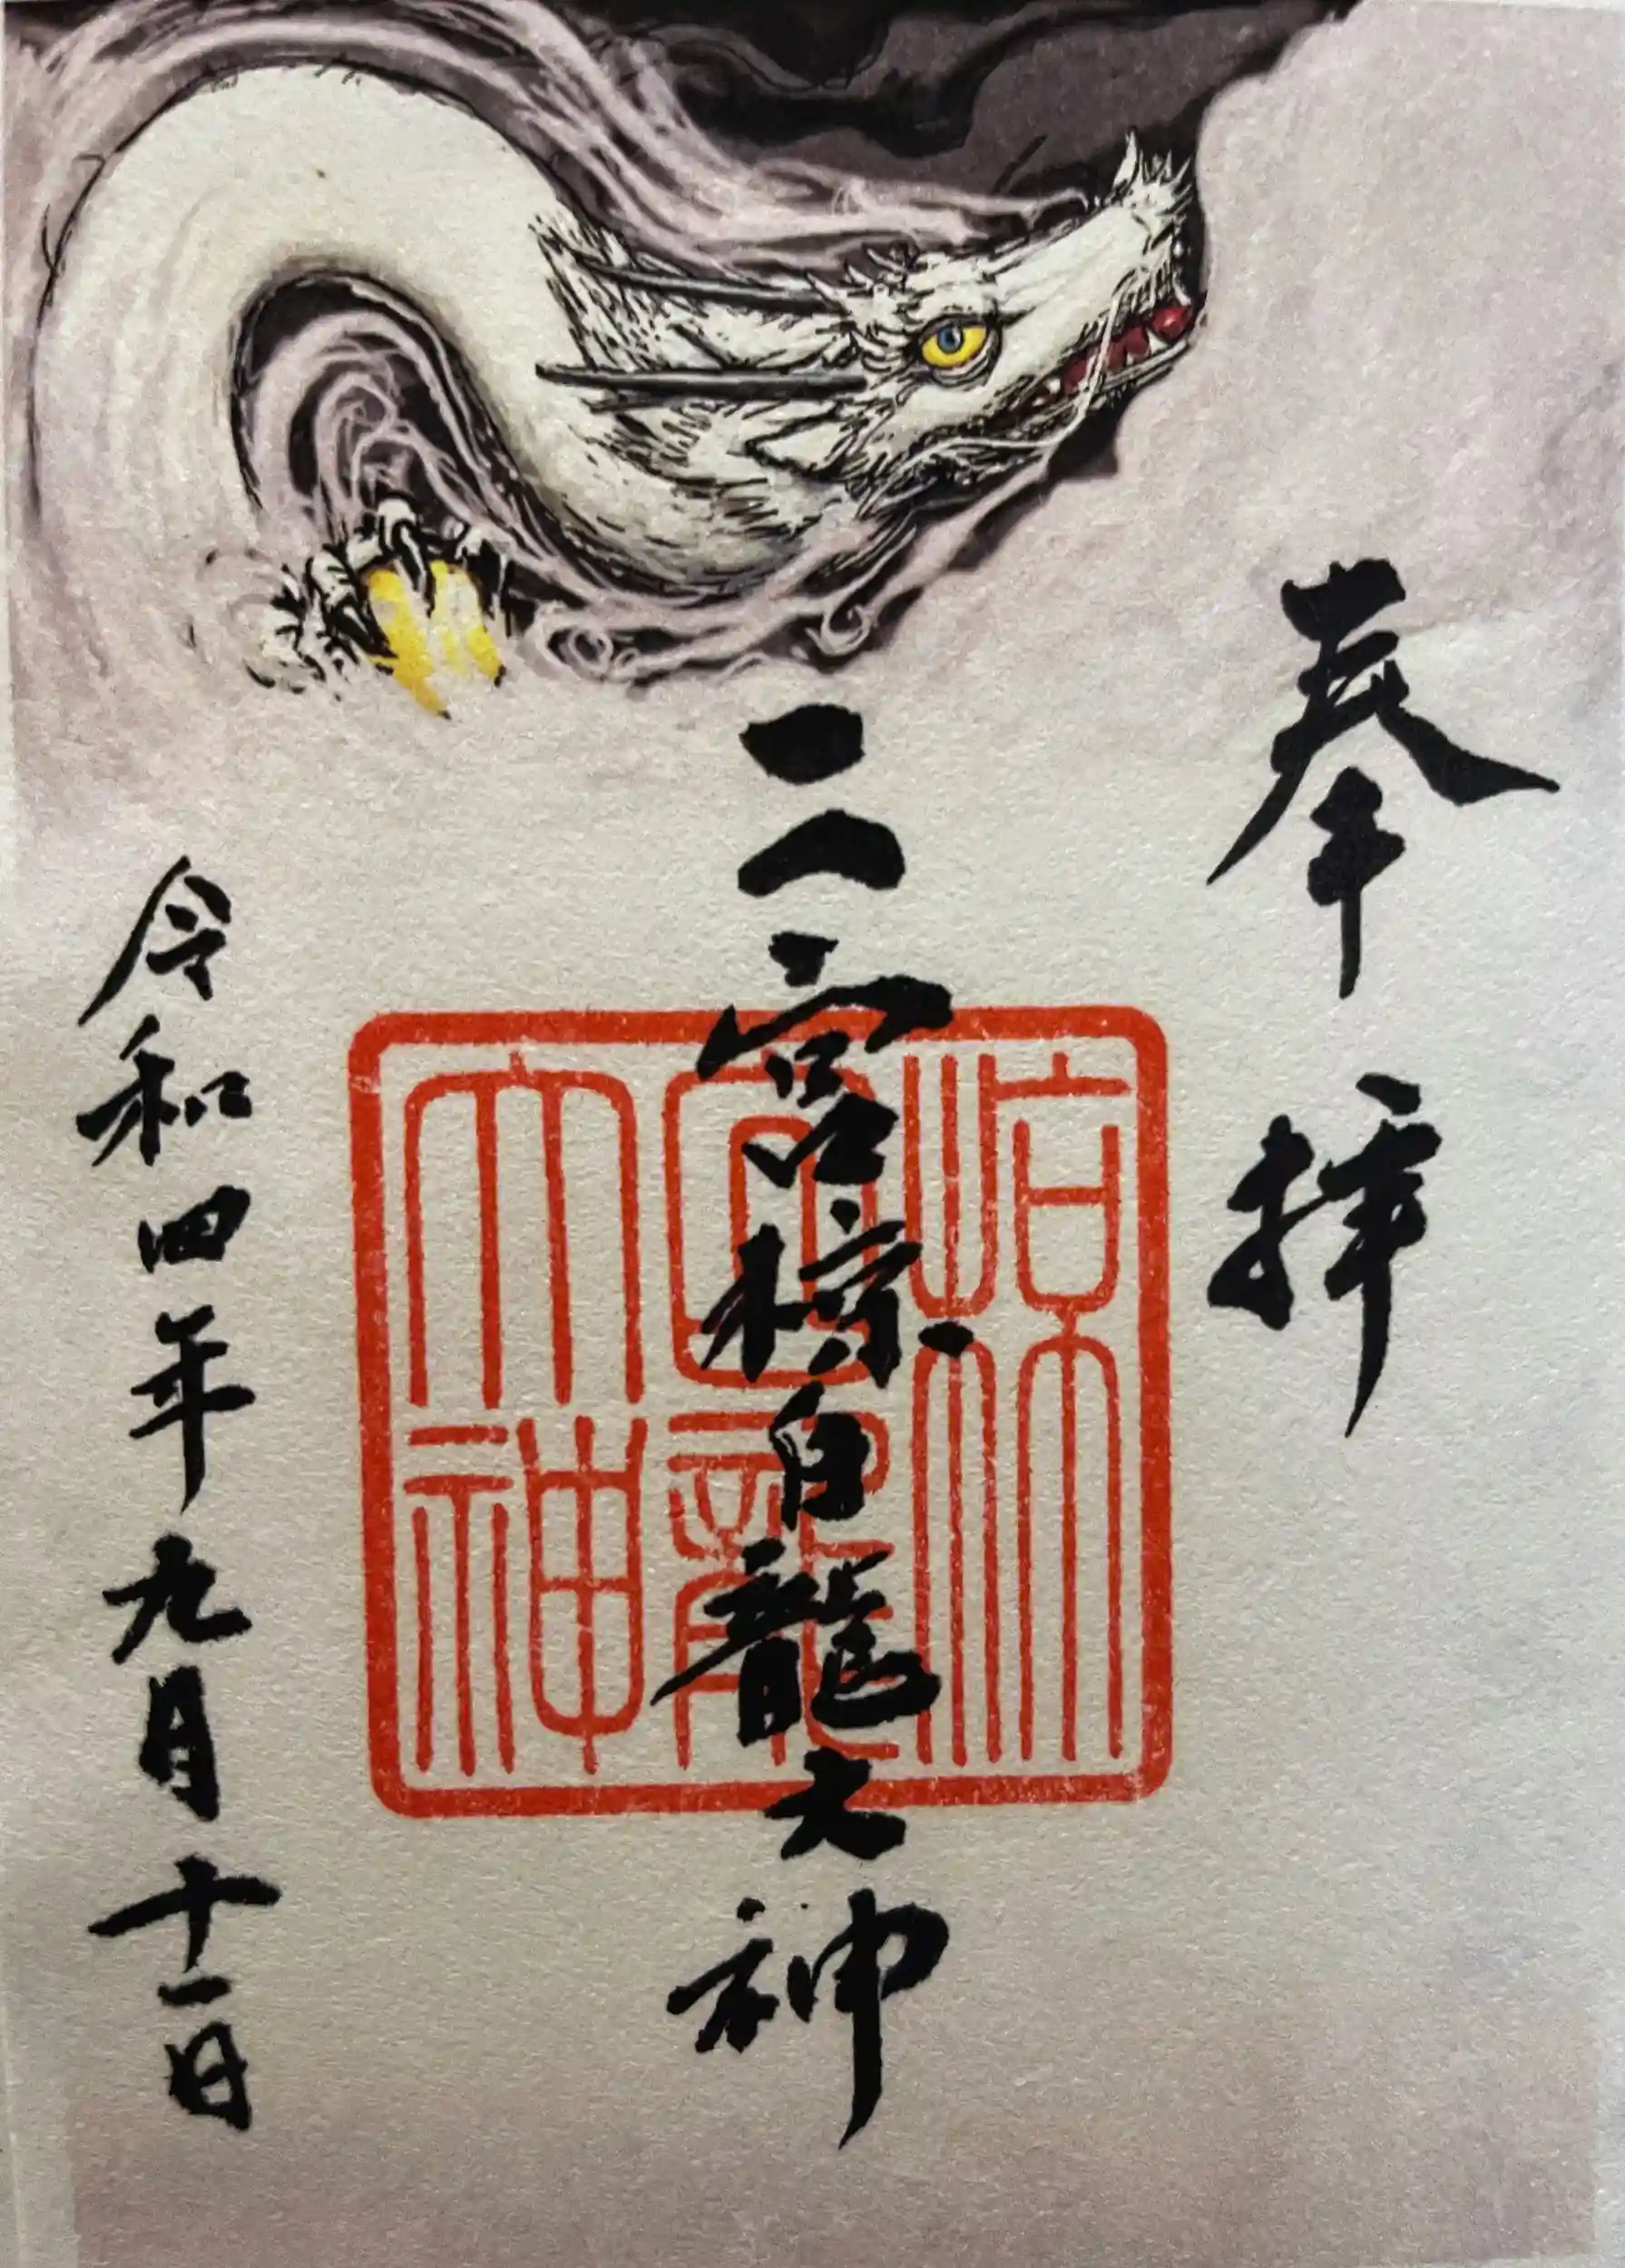 奉拝
二宮椋白龍大神
椋白龍大神
令和四年九月十一日